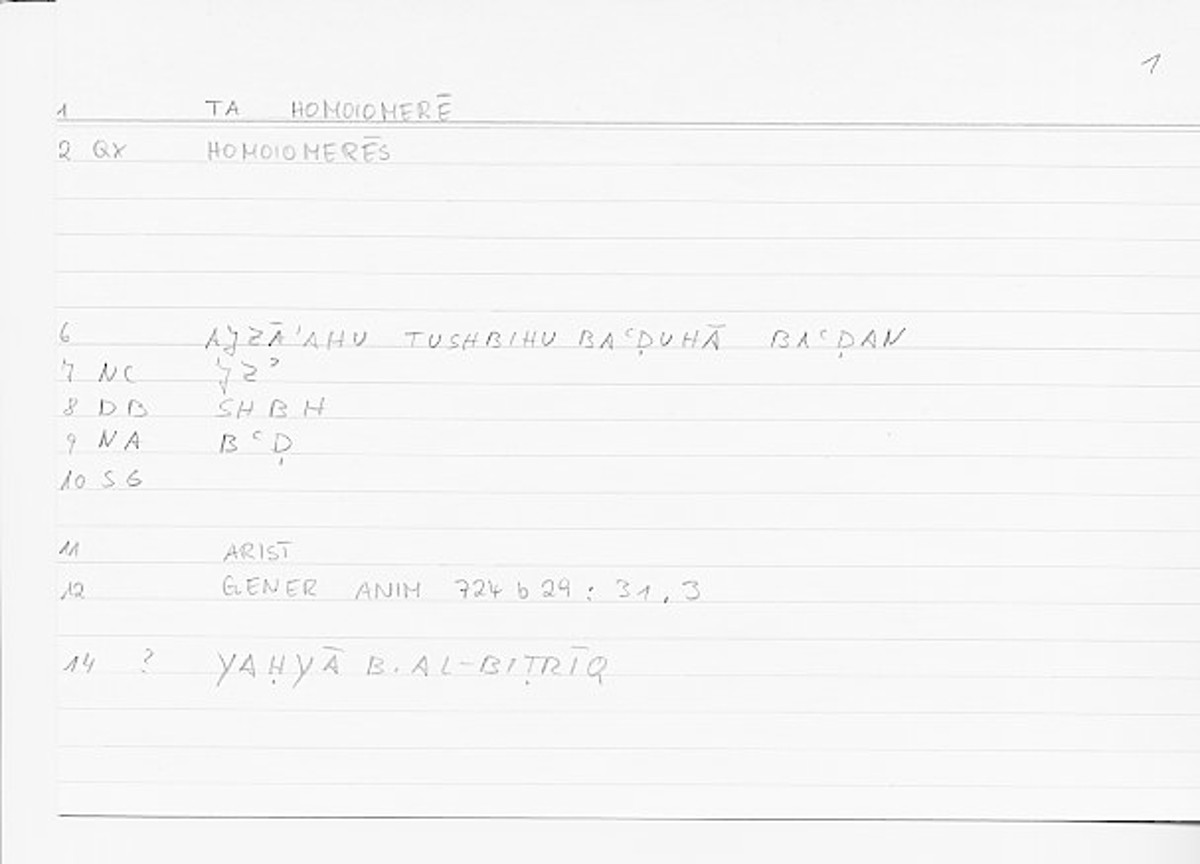 1
1 TA HOMOIOMERĒ
2 QX HOMOIOMERĒS
6 AJZĀ'AHU TUSHBIHU BAʿḌUHĀ BAʿḌAN
7 NC JZʾ
8 DB SHBH
9 NA BʿḌ
10 SG
11 ARIST
12 GENER ANIM 724 b 29 : 31,3
14 ? YAḤYĀ B. AL-BIṬRĪQ